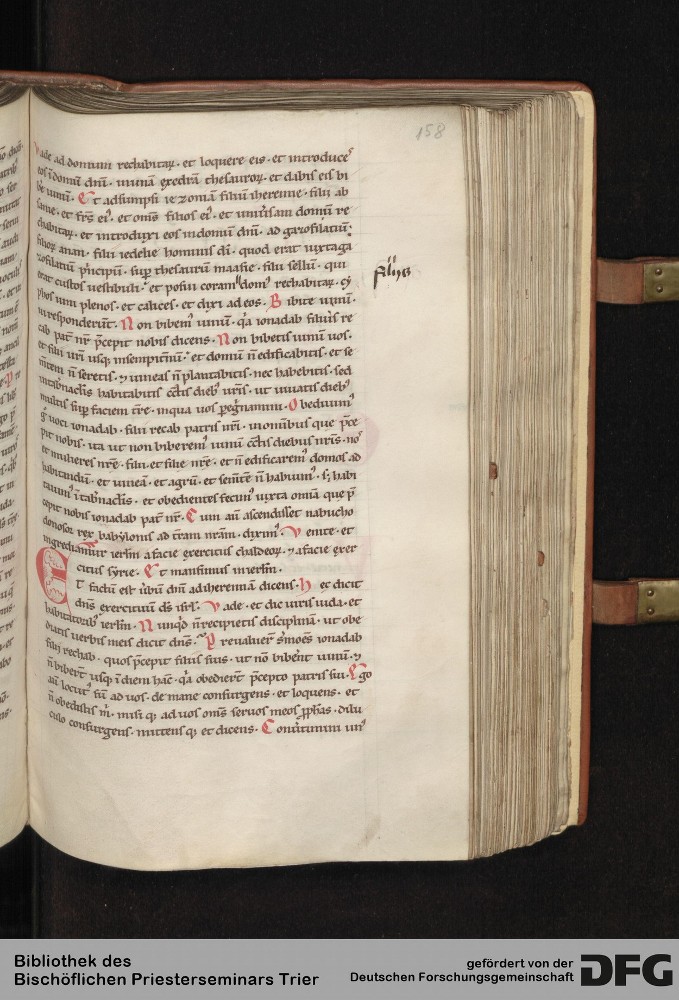 158
Vade ad domum rechabitaꝝ · et loquere eis · et introduceſ
eoſ ī domū dnī · in unā exedrā theſauroꝝ · et dabiſ eiſ bi
be uinū · Et adſumpſi iezoniā filiū iheremie · filii ab
ſanie · et fr̄ſ ei' · et om̄ſ filioſ ei' · et uniuſam domū re
chabitaꝝ · et introduxi eoſ in domū dnī · ad gazofilatiū
filioꝝ anan · filii iedelie hominiſ dī · quod erat iuxta ga
zofilatiū p̄ncipū · ſup̄ theſaurū maaſie · filii ſellū · qui
erat cuſtoſ ueſtibuli · et poſui coram dom' rechabitaꝝ · cy
filiis
phoſ uini plenoſ · et caliceſ · et dixi ad eoſ · Bibite uinū ·
Qui reſponderūt · Non bibem' uinū · q̄a ionadab filiuſ re
cab pat̄ nr̄ p̄cepit nobiſ dicenſ · Non bibetiſ uinū uoſ ·
et filii ur̄i uſq; in ſempit̄nū · et domū n̄ edificabitiſ · et ſe
m̄tem n̄ ſeretiſ · ⁊ uineaſ n̄ plantabitiſ · nec habebitiſ · ſed
in tab̄nacl̄iſ habitabitiſ cūctiſ dieb' ur̄iſ · ut uiuatiſ dieb'
multiſ ſup̄ faciem t̄re · in qua uoſ peg̓namini · Obediuim'
g̊ uoci ionadab · filii recab patriſ nr̄i · in omnibuſ que p̄ce
pit nobiſ · ita ut non biberem' uinū cūctiſ diebuſ nr̄iſ · noſ
et muliereſ nr̄e · filii · et filie nr̄e · et n̄ edificarem' domoſ ad
habitandū · et uineā · et agrū · et ſem̄te n̄ habuim' · ſ; habi
tauim' ī tab̄nacl̄iſ · et obedienteſ fecim' iuxta omīa que p̄
cepit nobiſ ionadab pat̄ nr̄ · Cum aū aſcendiſſet nabucho
donoſor rex babyloniſ ad t̄ram nr̄am · dixim' · Venite · et
ingrediamur ierl̄m a facie exercituſ chaldeoꝝ · ⁊ a facie exer
cituſ ſyrie · Et manſimuſ in ierl̄m ·
Et factū eſt u̓bū dnī ad iheremiā dicenſ · Hec dicit
dn̄ſ exercituū dſ iſrl̄ · Vade · et dic uiriſ iuda · et
habitatorib' ierl̄m · Nunq̄d n̄ recipietiſ diſciplinā · ut obe
diatiſ uerbiſ meiſ dicit dn̄ſ · Preualuer̄ ſ̓moneſ ionadab
filii rechab · quoſ p̄cepit filiiſ ſuiſ · ut nō bibērent uinū · ⁊
n̄ biber̄t uſq; ī diem hāc · q̄a obedier̄t p̄cepto patriſ ſui · Ego
aū locut' ſū ad uoſ · de mane conſurgenſ · et loquenſ · et
n̄ obediſtiſ m̄ · miſi q; ad uoſ om̄ſ ſeruoſ meoſ p̄phaſ · dilu
culo conſurgenſ · mittenſ q; et dicenſ · Conūtimini un'
Bibliothek des
Bischöflichen Priesterseminars Trier
gefördert von der
Deutschen Forschungsgemeinschaft
DFG